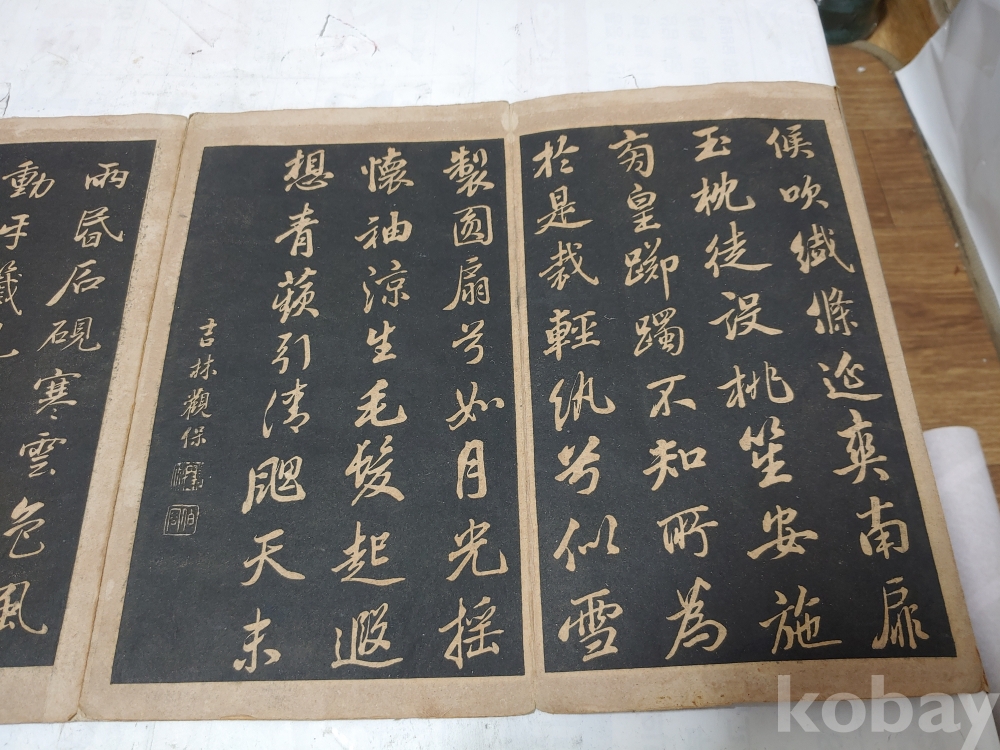 候吹纖條延爽南扉
玉枕徒設桃笙安施
皇躑躅不知所為
於是裁輕紈兮似雪
製圓扇兮如月光搖
懷袖涼生毛髮起遐
想青蘋引清颸天末
吉林觀保
雨昏石硯寒雲色風
動牙籤
kobay